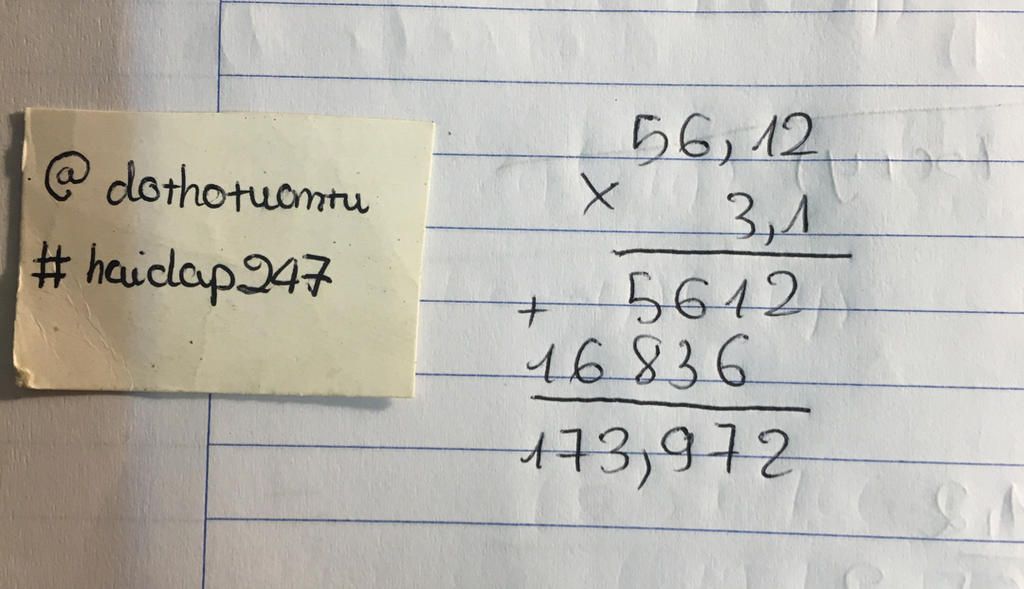 @ dothotuomtu
# haidap247
56,12
× 3,1
5612
+
16836
173,972